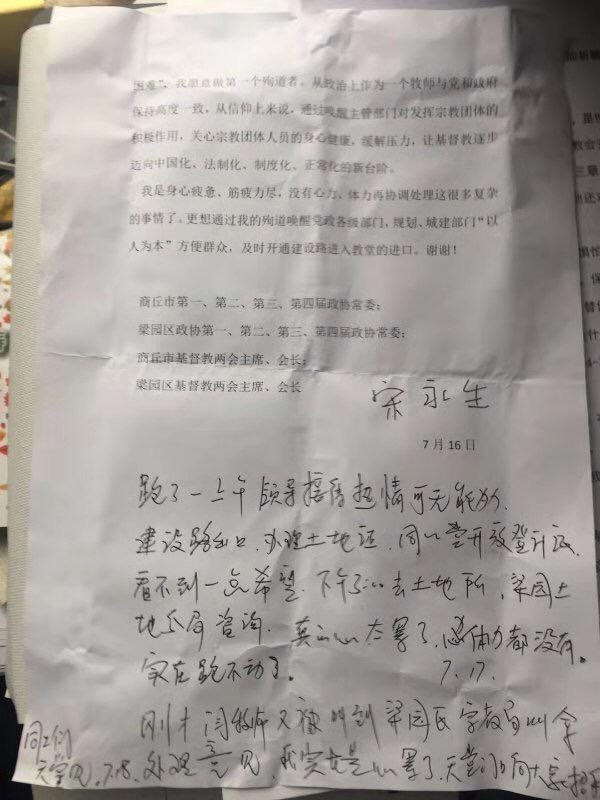 困难”，我愿意做第一个殉道者，从政治上作为一个牧师与党和政府
保持高度一致，从信仰上来说，通过唤醒主管部门对发挥宗教团体的
积极作用，关心宗教团体人员的身心健康，缓解压力，让基督教逐步
迈向中国化、法制化、制度化、正常化的新台阶。
我是身心疲惫、筋疲力尽，没有心力、体力再协调处理这很多复杂
的事情了。更想通过我的殉道唤醒党政各级部门，规划、城建部门“以
人为本”方便群众，及时开通建设路进入教堂的进口。谢谢！
商丘市第一、第二、第三、第四届政协常委；
梁园区政协第一、第二、第三、第四届政协常委；
商丘市基督教两会主席、会长；
梁园区基督教两会主席、会长
宋永生
7月16日
跑了一上午领导接待热情可无能为力
建设路出口，办理土地证，同心堂开放登记
看不到一点希望，下午了 去土地所，梁园土
地分局咨询，真的心太累了，体力都没有。
实在跑不动了。 7.17.
刚才闫牧师又被叫到梁园民宗教局
处理意见，我实在是心累了，天堂
同工们
天堂见。7.18.